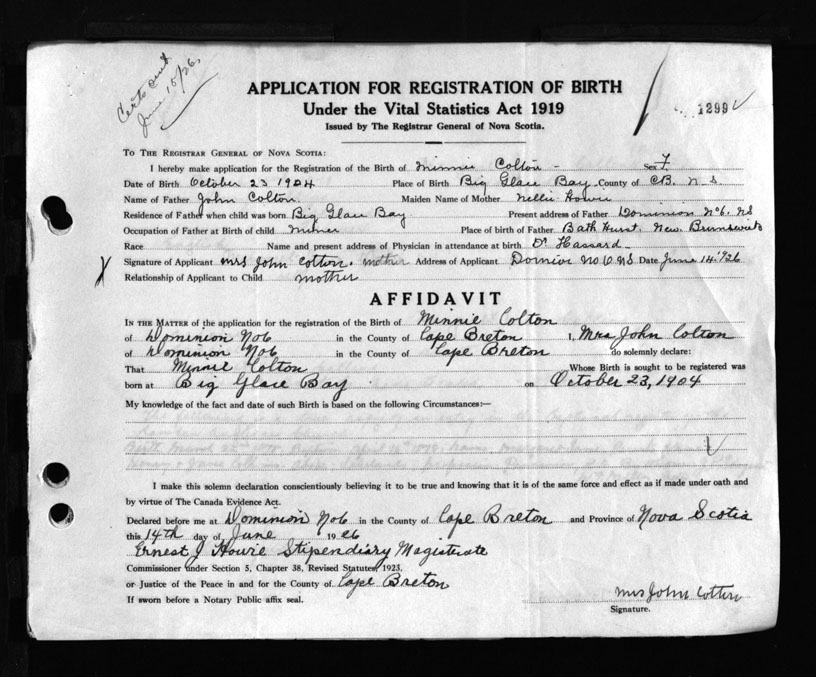 Certs sent
June 15/26
APPLICATION FOR REGISTRATION OF BIRTH
1299
Under the Vital Statistics Act 1919
Issued by The Registrar General of Nova Scotia.
TO THE REGISTRAR GENERAL OF NOVA SCOTIA:
I hereby make application for the Registration of the Birth of Minnie Colton - Sex F
Date of Birth October 23 1904 Place of Birth Big Glace Bay County of CB. N S
Name of Father John Colton Maiden Name of Mother Nellie Howie
Residence of Father when child was born Big Glace Bay Present address of Father Dominion No 6. NS
Occupation of Father at Birth of child miner Place of birth of Father Bathurst. New Brunswick
Race Name and present address of Physician in attendance at birth Dr Hassard
Signature of Applicant mrs John Colton. mother Address of Applicant No 6 NS Date June 14. 1926
Relationship of Applicant to Child mother
AFFIDAVIT
IN THE MATTER of the application for the registration of the Birth of Minnie Colton
of Dominion No6 in the County of Cape Breton I, Mrs John Colton
of Dominion No6 in the County of Cape Breton do solemnly declare:
That Minnie Colton Whose Birth is sought to be registered was
born at Big Glace Bay on October 23, 1904
My knowledge of the fact and date of such Birth is based on the following Circumstances:—
I make this solemn declaration conscientiously believing it to be true and knowing that it is of the same force and effect as if made under oath and
by virtue of The Canada Evidence Act.
Declared before me at Dominion No6 in the County of Cape Breton and Province of Nova Scotia
this 14th day of June 1926
Ernest J Howie Stipendiary Magistrate
Commissioner under Section 5, Chapter 38, Revised Statutes, 1923.
or Justice of the Peace in and for the County of Cape Breton
If sworn before a Notary Public affix seal.
mrs John Cotton
Signature.